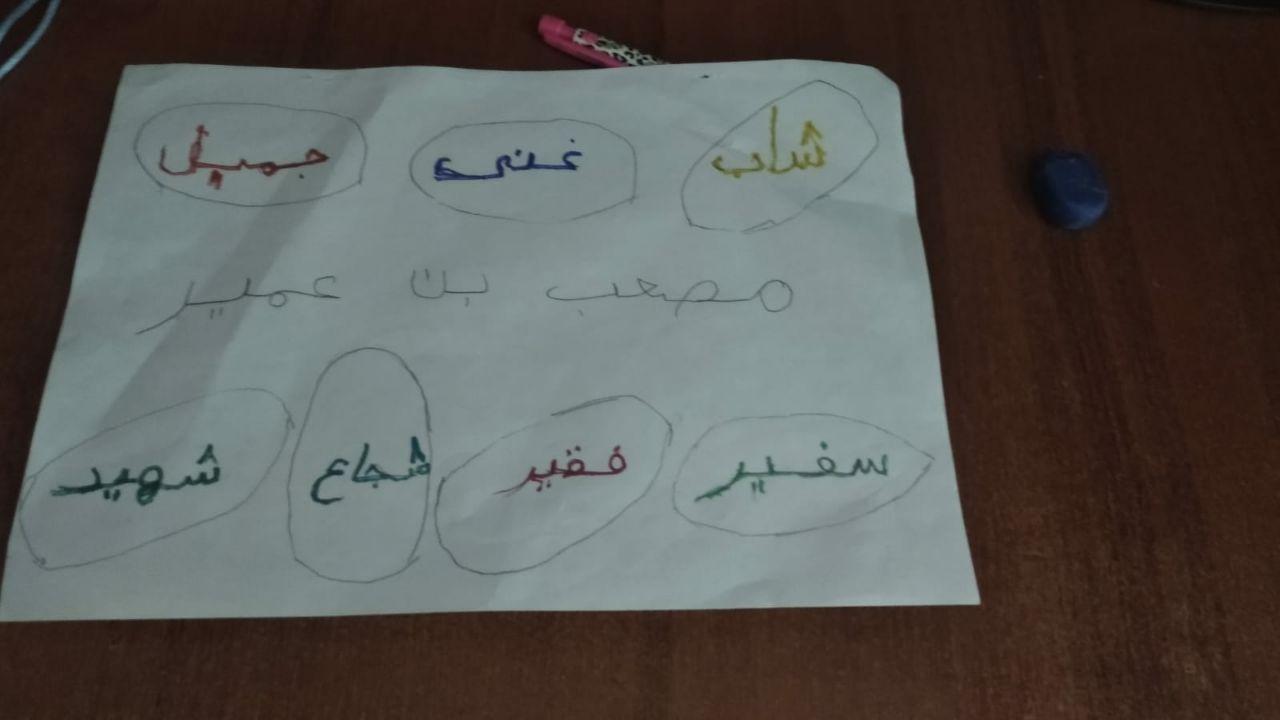 شاب غنى جميل
مصعب بن عمير
سفير فقير شجاع شهيد